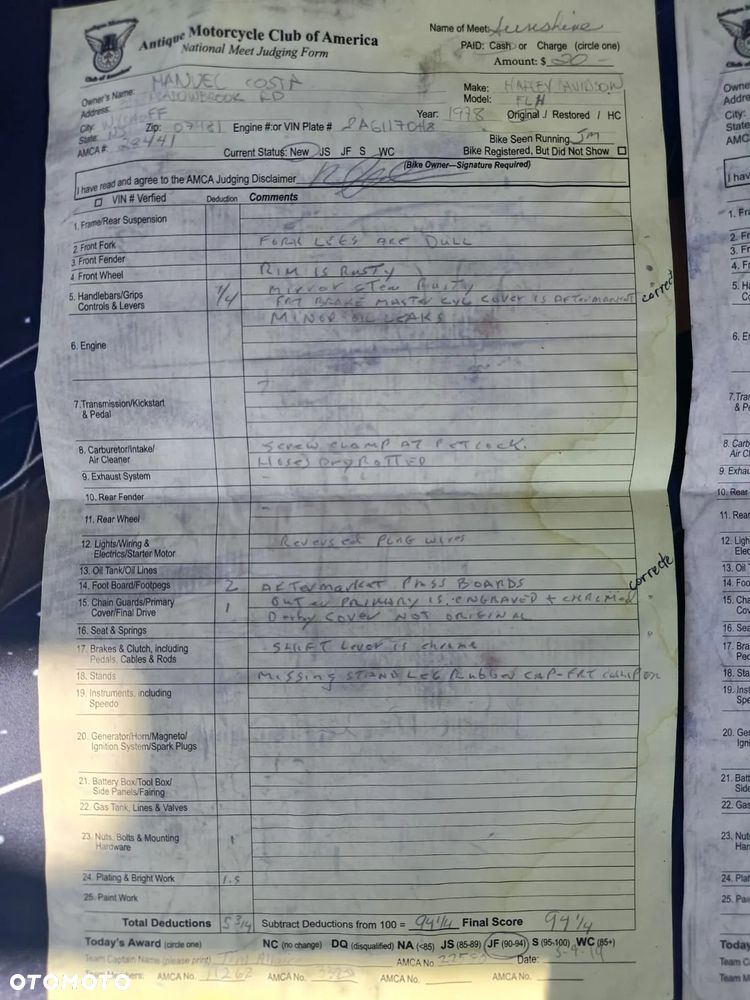 Antique Motorcycle Club of America
National Meet Judging Form
Name of Meet: Sunshine
PAID: Cash or Charge (circle one)
Amount: $ 20 -
Owner's Name: MANUEL COSTA
Address: RD
City: WYCKOFF
State: NJ Zip: 07481 Engine #:or VIN Plate #
AMCA#: 28441
Make: HARLEY DAVIDSON
Model: FLH
Year: 1978 Original / Restored / HC
Bike Seen Running JM
Current Status: New JS JF S WC
Bike Registered, But Did Not Show
(Bike Owner—Signature Required)
I have read and agree to the AMCA Judging Disclaimer
VIN # Verfied Deduction Comments
1. Frame/Rear Suspension
2. Front Fork FORK LEGS ARE DULL
3. Front Fender
4. Front Wheel RIM IS RUSTY
5. Handlebars/Grips Controls & Levers 1/4 MIRROR STEM RUSTY
FRT BRAKE MASTER CYL COVER IS AFTERMARKET correct
6. Engine MINOR OIL LEAKS
7. Transmission/Kickstart & Pedal
8. Carburetor/Intake/ Air Cleaner SCREW CLAMP AT PETCOCK.
HOSES DRY ROTTED
9. Exhaust System
10. Rear Fender
11. Rear Wheel
12. Lights/Wiring & Electrics/Starter Motor Reversed PLUG WIRES
13. Oil Tank/Oil Lines
14. Foot Board/Footpegs 2 AFTERMARKET PASS BOARDS
15. Chain Guards/Primary Cover/Final Drive 1 OUTER PRIMARY IS ENGRAVED + CHROMED correcte
Derby COVER NOT ORIGINAL
16. Seat & Springs
17. Brakes & Clutch, including Pedals, Cables & Rods SHIFT Lever is chrome
18. Stands Missing STAND LEG Rubber CAP - FRT
19. Instruments, including Speedo
20. Generator/Horn/Magneto/ Ignition System/Spark Plugs
21. Battery Box/Tool Box/ Side Panels/Fairing
22. Gas Tank, Lines & Valves
23. Nuts, Bolts & Mounting Hardware 1
24. Plating & Bright Work 1.5
25. Paint Work
Total Deductions 5 3/4 Subtract Deductions from 100 = 94 1/4 Final Score 94 1/4
Today's Award (circle one) NC (no change) DQ (disqualified) NA (<85) JS (85-89) JF (90-94) S (95-100) WC (85+)
Team Captain Name (please print) Tom AMCA No. Date:
Team Members: AMCA No. 11262 AMCA No. AMCA No.
OTOMOTO